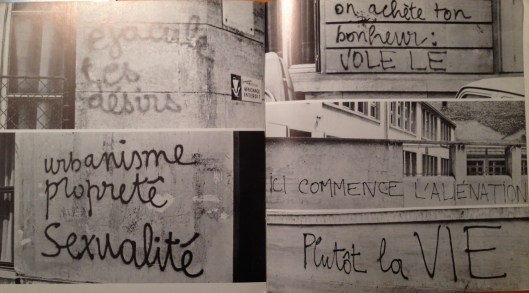 ejacule
tes
désirs
urbanisme
propreté
sexualité
on achète ton
bonheur:
VOLE LE
ICI COMMENCE L'ALIENATION
Plutôt la VIE